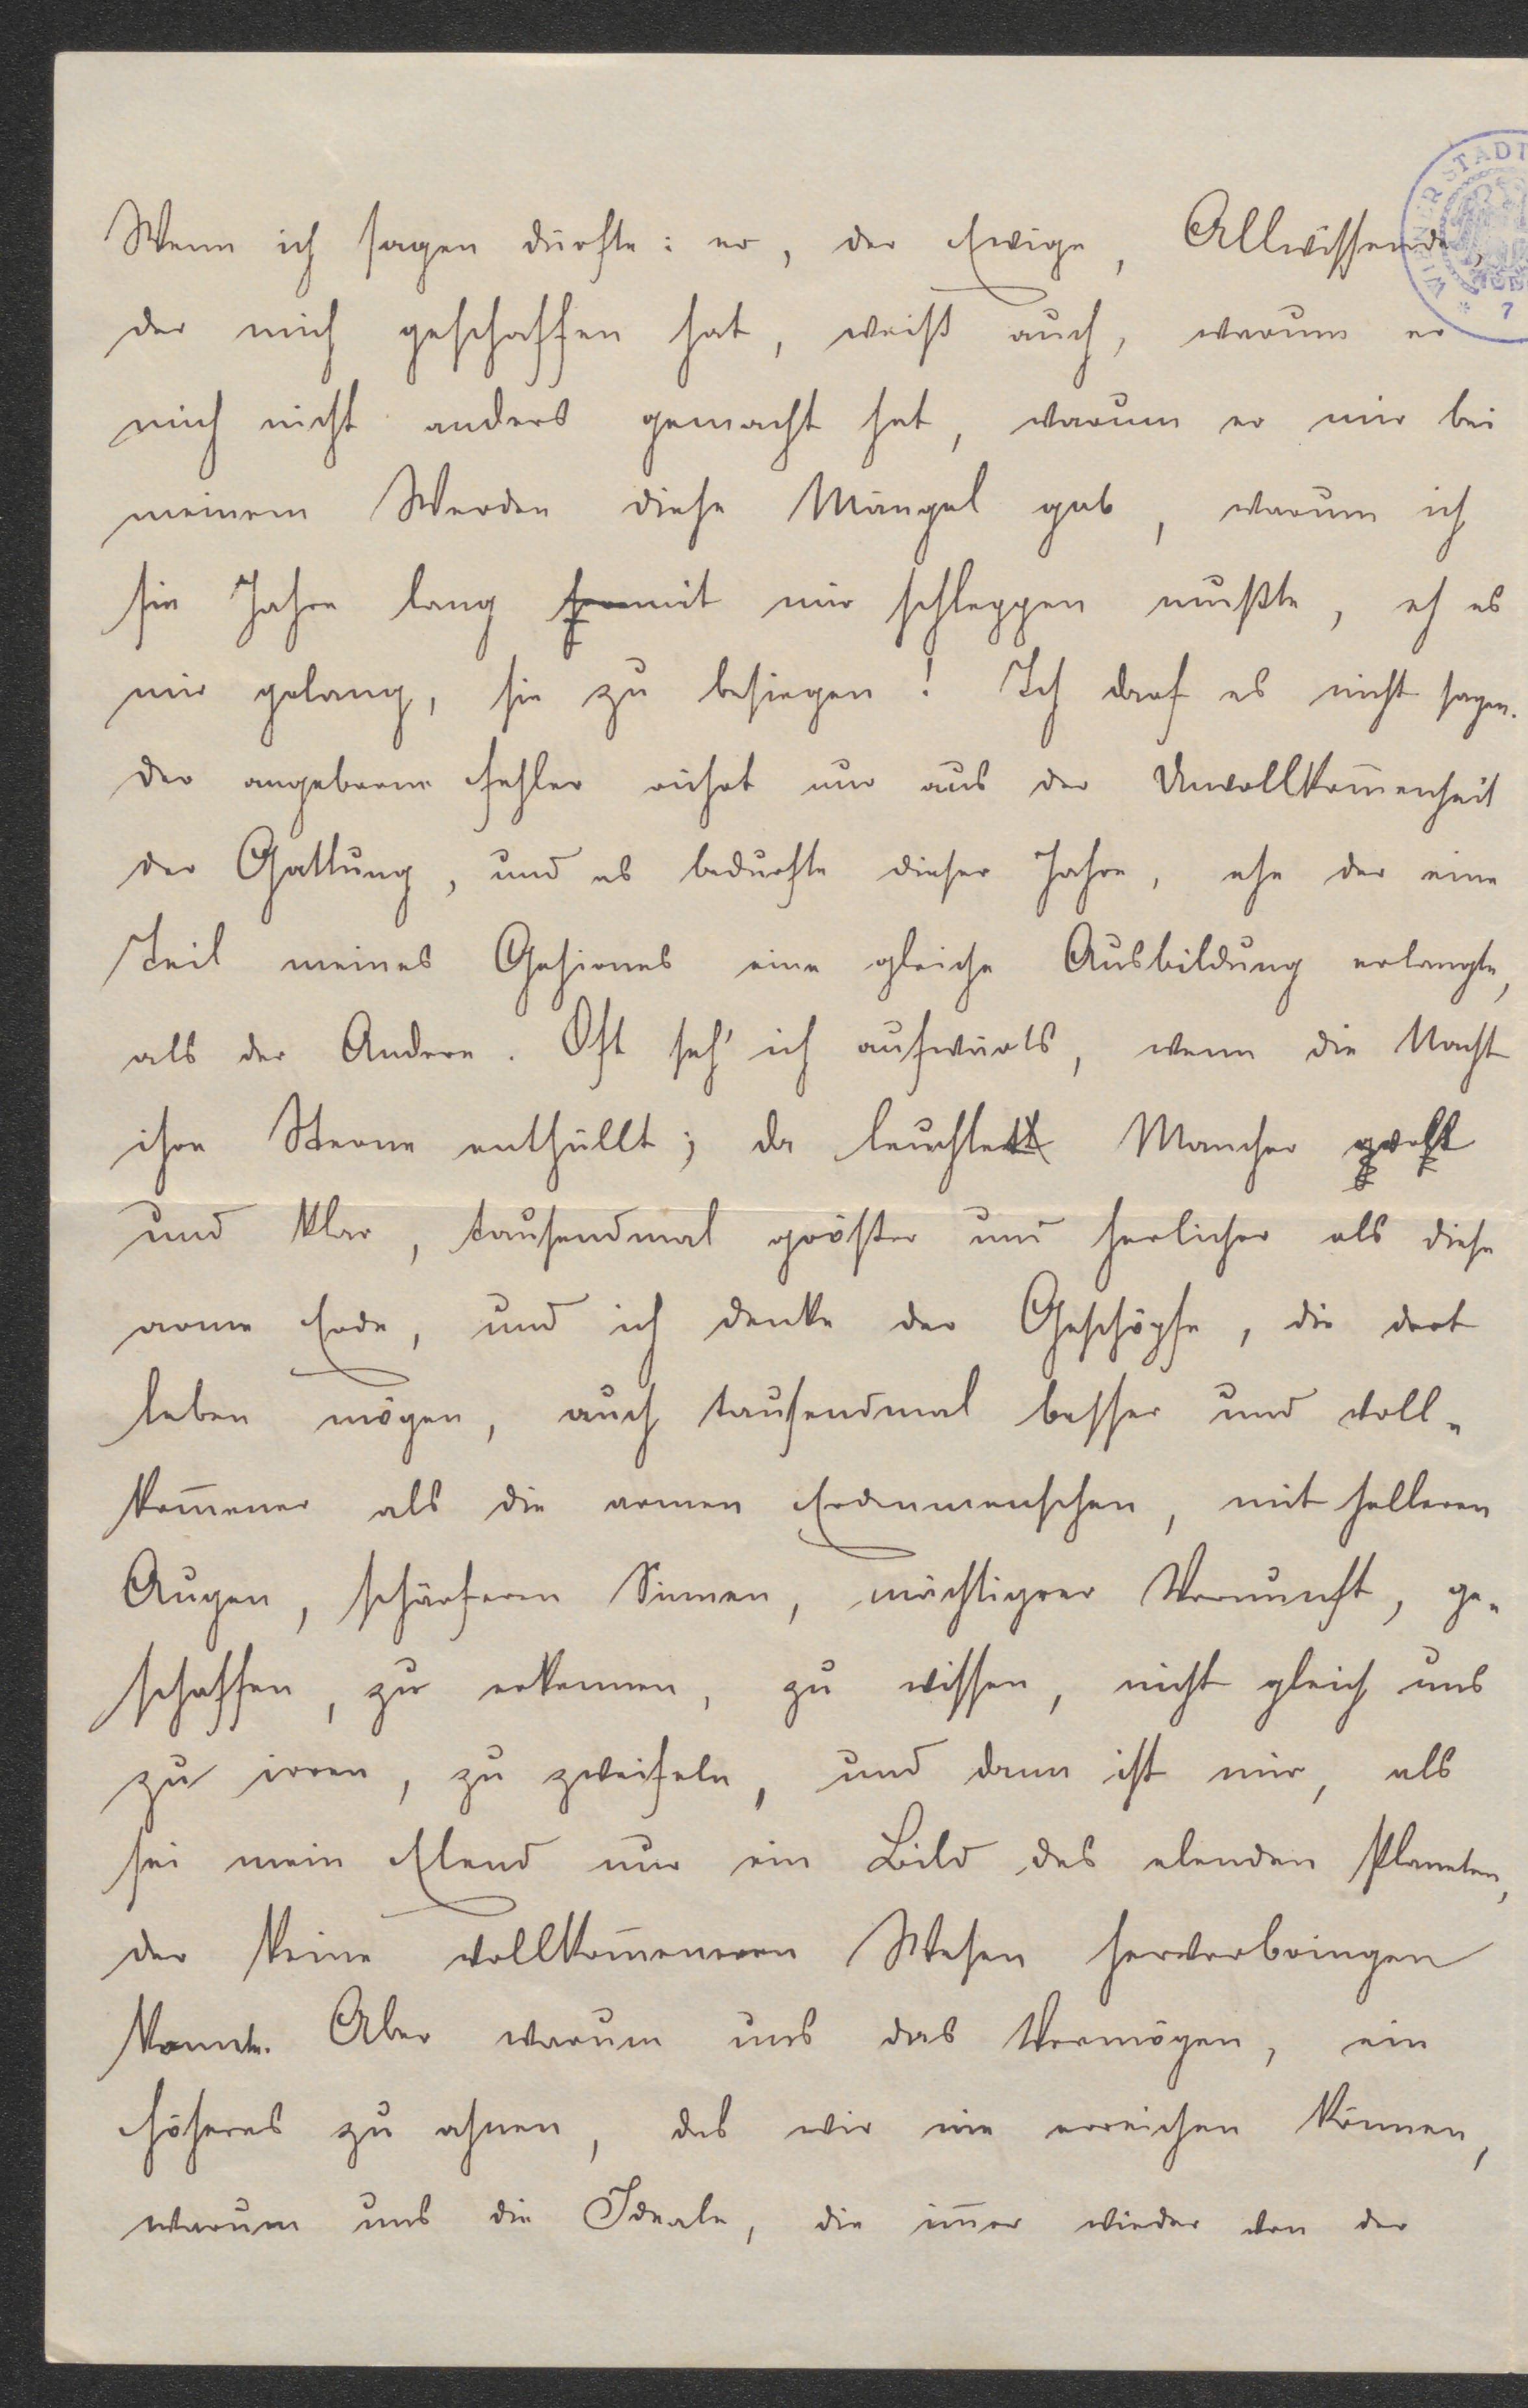 Wenn ich sagen dürfte: er, der Ewige, Allwissende,
der mich geschaffen hat, weiß auch, warum er
mich nicht anders gemacht hat, warum er mir bei
meinem Werden diese Mängel gab, warum ich
sie Jahre lang mit mir schleppen mußte, eh es
mir gelang, sie zu besiegen! Ich darf es nicht sagen.
der angeborne Fehler rührt nur aus der Unvollkom̄enheit
der Gattung, und es bedurfte dieser Jahre, ehe der eine
Teil meines Gehirnes eine gleiche Ausbildung erlangte,
als der Andere. Oft seh' ich aufwärts, wenn die Nacht
ihre Sterne enthüllt; da leuchtet Mancher groß
und klar, tausendmal größer und herlicher als diese
arme Erde, und ich denke der Geschöpfe, die dort
leben mögen, auch tausendmal besser und voll-
kom̄ener als die armen Erdenmenschen, mit helleren
Augen, schärferen Sinnen, mächtigrer Vernunft, ge-
schaffen, zu erkennen, zu wissen, nicht gleich uns
zu irren, zu zweifeln, und dann ist mir, als
sei mein Elend nur ein Bild des elenden Planeten,
der keine vollkom̄eneren Wesen hervorbringen
konnte. Aber warum uns das Vermögen, ein
Höheres zu ahnen, das wir nie erreichen können,
warum uns die Ideale, die im̄er wieder von der
WIENER STADT
7